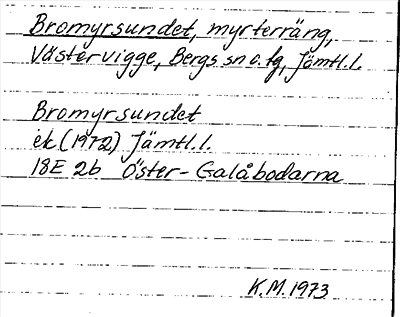 Bromyrsundet, myrterräng,
Västervigge, Bergs sn o. tg, Jämtl.l.
Bromyrsundet
ek (1972) Jämtl.l.
18E 2b Öster-Galåbodarna
K.M. 1973